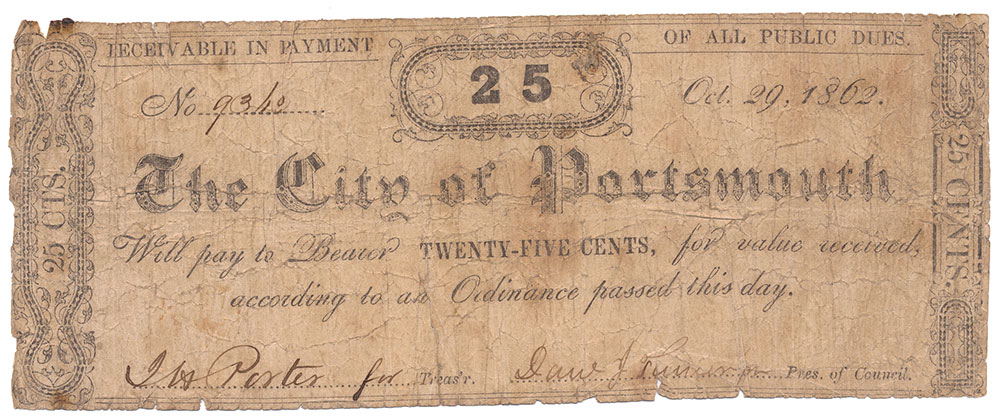 RECEIVABLE IN PAYMENT OF ALL PUBLIC DUES.
25
No. Oct. 29, 1862.
The City of Portsmouth
Will pay to Bearer TWENTY-FIVE CENTS, for value received,
according to an Ordinance passed this day.
Porter for Treas'r. Pres. of Council.
25 CTS.
25 CENTS.